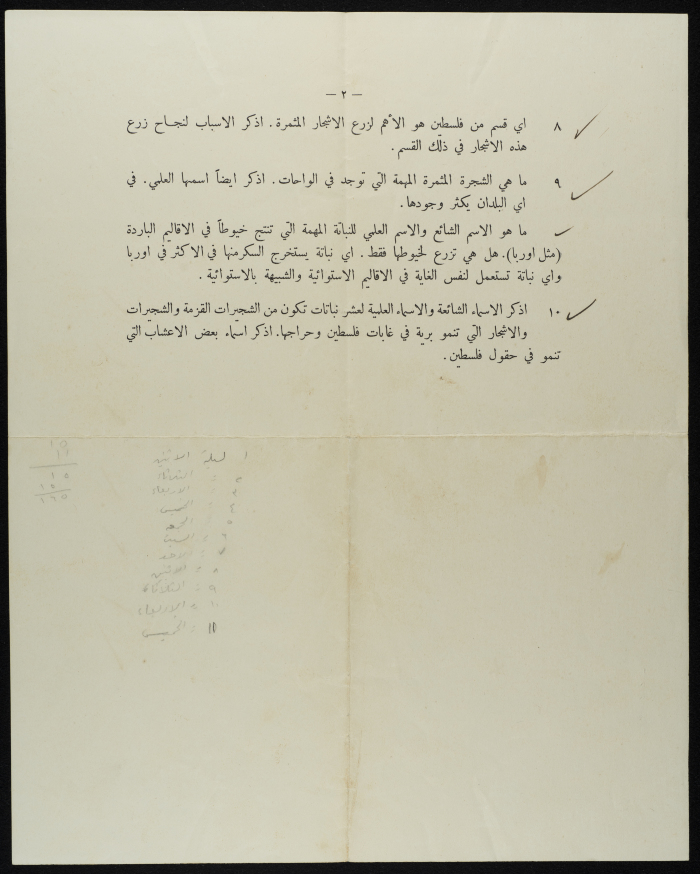 — ٢ —
٨ اي قسم من فلسطين هو الأهم لزرع الاشجار المثمرة . اذكر الاسباب لنجاح زرع
هذه الاشجار في ذلك القسم .
٩ ما هي الشجرة المثمرة المهمة التي توجد في الواحات . اذكر ايضاً اسمها العلمي . في
اي البلدان يكثر وجودها .
ما هو الاسم الشائع والاسم العلمي للنباتة المهمة التي تنتج خيوطاً في الاقاليم الباردة
(مثل اوربا). هل هي تزرع لخيوطها فقط . اي نباتة يستخرج السكر منها في الاكثر في اوربا
واي نباتة تستعمل لنفس الغاية في الاقاليم الاستوائية والشبيهة بالاستوائية .
١٠ اذكر الاسماء الشائعة والاسماء العلمية لعشر نباتات تكون من الشجيرات القزمة والشجيرات
والاشجار التي تنمو برية في غابات فلسطين وحراجها. اذكر اسماء بعض الاعشاب التي
تنمو في حقول فلسطين .
١ ليلة الاثنين
٢ " الثلاثاء
٣ " الاربعاء
٤ " الخميس
٥ " الجمعة
٦ " السبت
٧ " الاحد
٨ " الاثنين
٩ " الثلاثاء
١٠ " الاربعاء
١١ " الخميس
١٥
١١
١٥
١٥
١٦٥